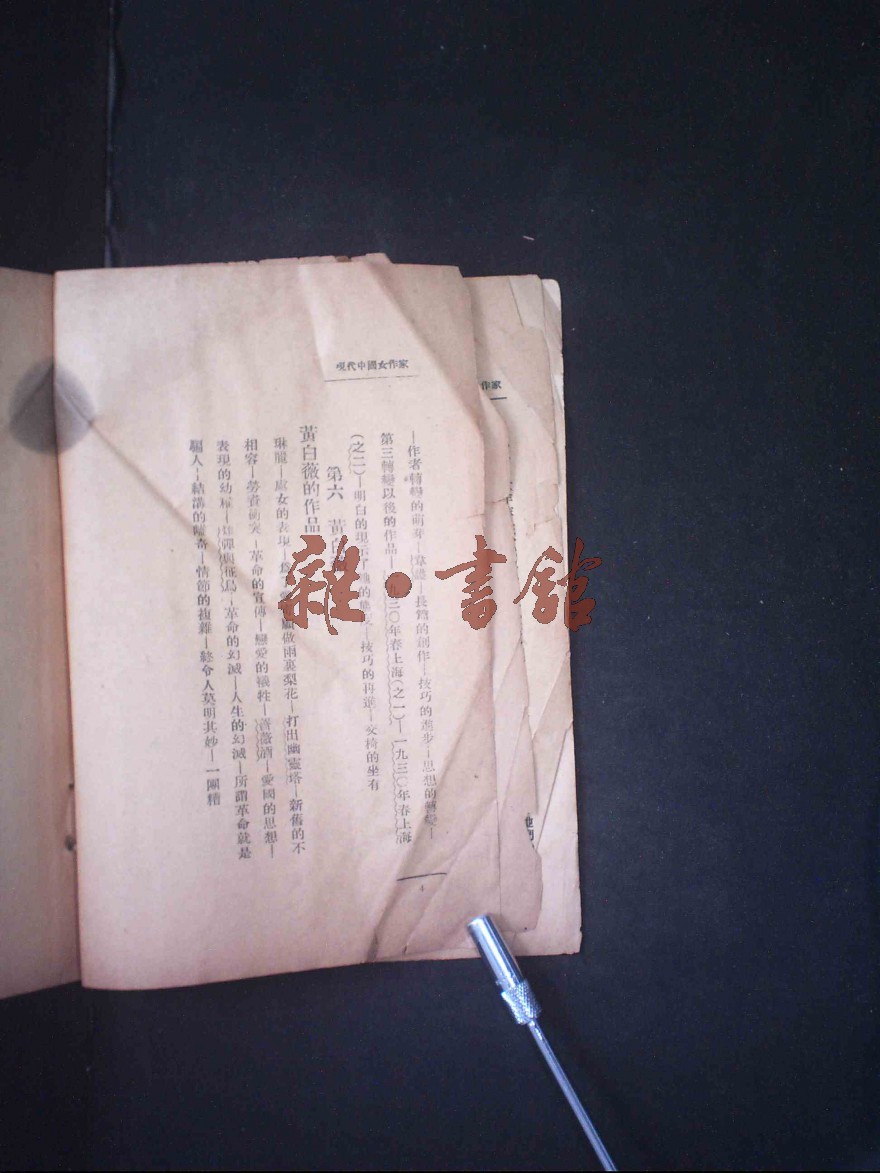 現代中國女作家
—作者轉變的萌芽—韋護—長篇的創作—技巧的進步—思想的轉變—
第三轉變以後的作品—一九三〇年春上海(之一)—一九三〇年春上海
(之二)—明白的現示了她的—技巧的再進—交椅的坐有
第六 黃白薇
黃白薇的作品
琳麗—處女的表現—做雨裏梨花—打出幽靈塔—新舊的不
相容—勞資衝突—革命的宣傳—戀愛的犧牲—薔薇酒—愛國的思想—
表現的幼稚—炸彈與征鳥—革命的幻滅—人生的幻滅—所謂革命就是
騙人—結構的離奇—情節的複雜—終令人莫明其妙—一團糟
作家
雜·書館